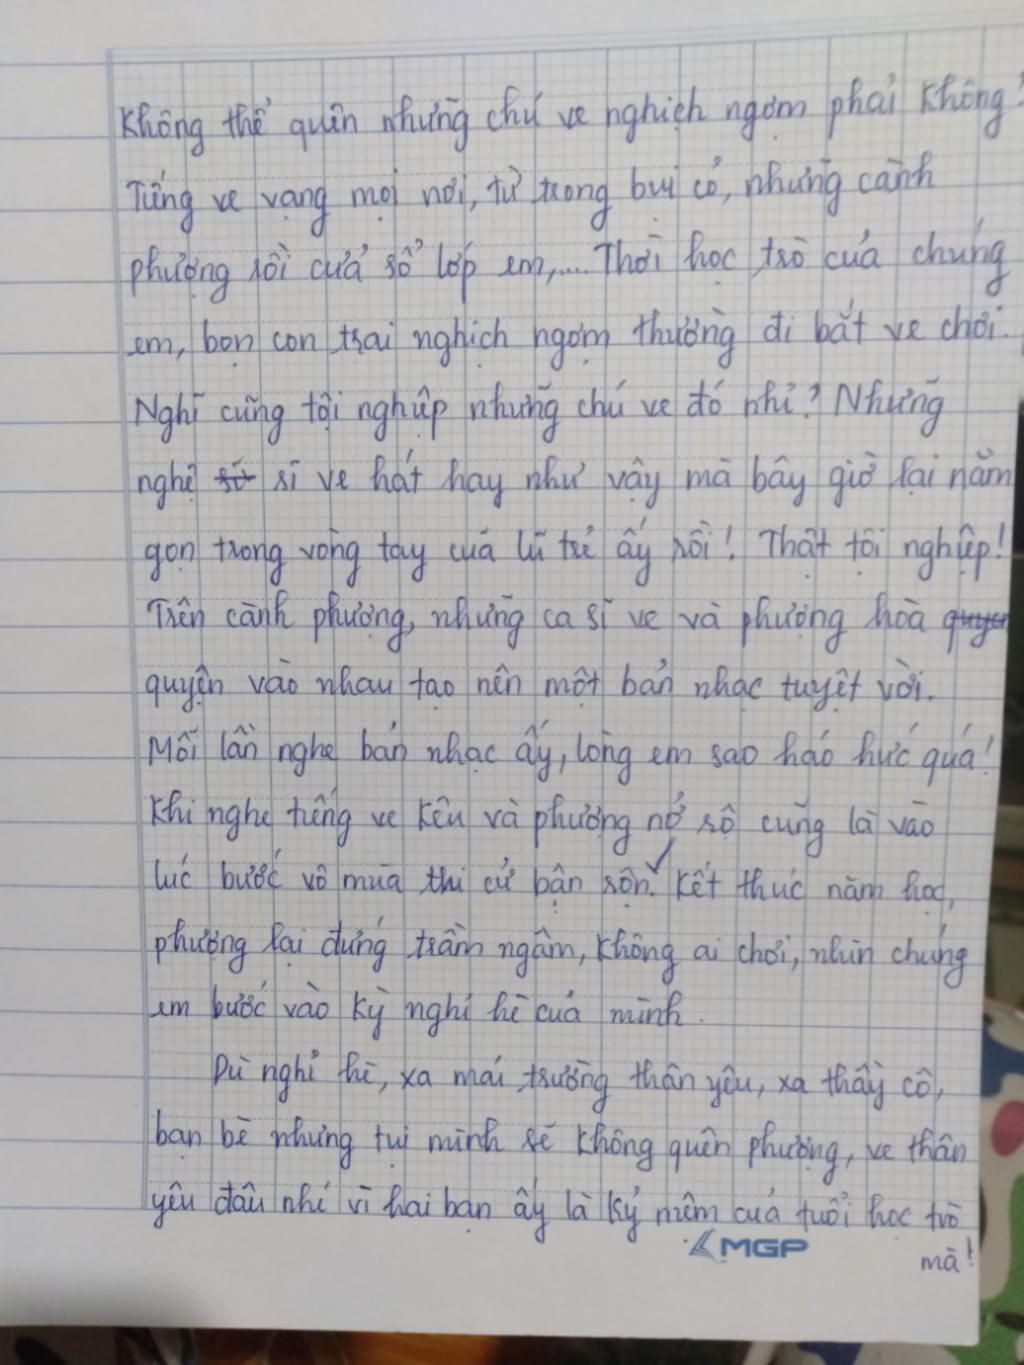 Không thể quên những chú ve nghịch ngợm phải không?
Tiếng ve vang mọi nơi, từ trong bụi cỏ, những cành
phượng rồi cửa sổ lớp em,... Thời học trò của chúng
em, bọn con trai nghịch ngợm thường đi bắt ve chơi.
Nghĩ cũng tội nghiệp những chú ve đó nhỉ? Những
nghệ sĩ ve hát hay như vậy mà bây giờ lại nằm
gọn trong vòng tay của lũ trẻ ấy rồi! Thật tội nghiệp!
Trên cành phượng, những ca sĩ ve và phượng hoà
quyện vào nhau tạo nên một bản nhạc tuyệt vời.
Mỗi lần nghe bản nhạc ấy, lòng em sao háo hức quá!
Khi nghe tiếng ve kêu và phượng nở rộ cũng là vào
lúc bước vô mùa thi cử bận rộn. Kết thúc năm học,
phượng lại đứng trầm ngâm, không ai chơi, nhìn chúng
em bước vào kỳ nghỉ hè của mình.
Dù nghỉ hè, xa mái trường thân yêu, xa thầy cô,
bạn bè nhưng tụi mình sẽ không quên phượng, ve thân
yêu đâu nhé vì hai bạn ấy là kỷ niệm của tuổi học trò
mà!
MGP